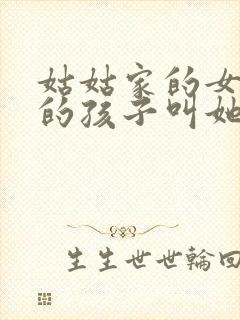 姑姑家的女
的孩子叫她
生生世世輪回